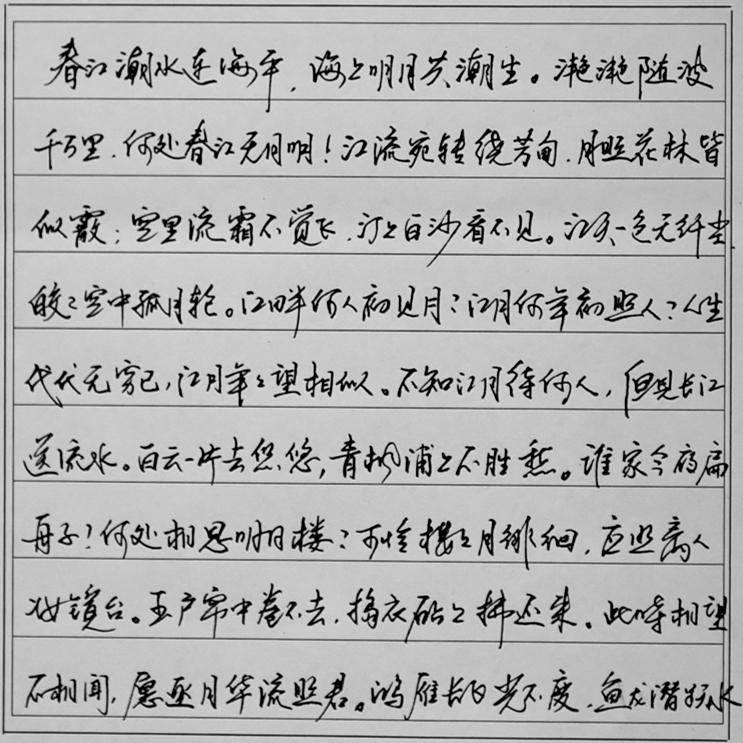 春江潮水连海平，海上明月共潮生。滟滟随波
千万里，何处春江无月明！江流宛转绕芳甸，月照花林皆
似霰；空里流霜不觉飞，汀上白沙看不见。江天一色无纤尘，
皎皎空中孤月轮。江畔何人初见月？江月何年初照人？人生
代代无穷已，江月年年望相似。不知江月待何人，但见长江
送流水。白云一片去悠悠，青枫浦上不胜愁。谁家今夜扁
舟子？何处相思明月楼？可怜楼上月徘徊，应照离人
妆镜台。玉户帘中卷不去，捣衣砧上拂还来。此时相望
不相闻，愿逐月华流照君。鸿雁长飞光不度，鱼龙潜跃水